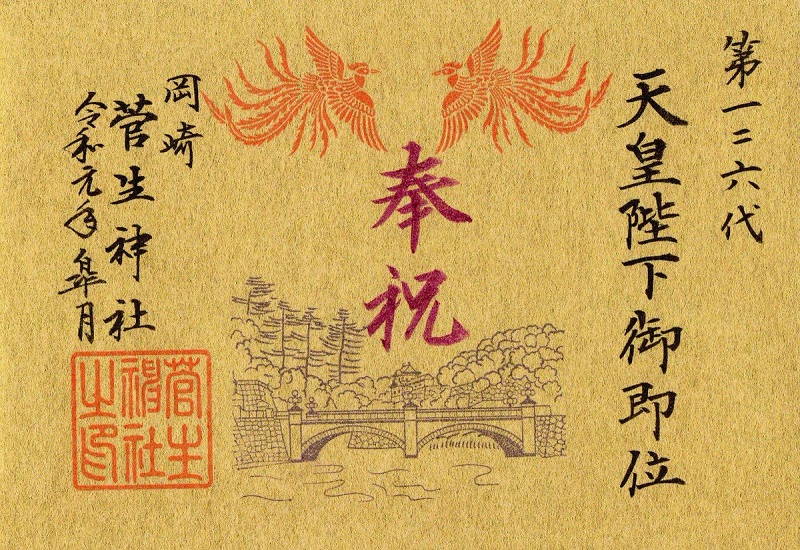 第一二六代
天皇陛下御即位
奉祝
岡崎
菅生神社
令和元年皐月
菅生
神社
之印